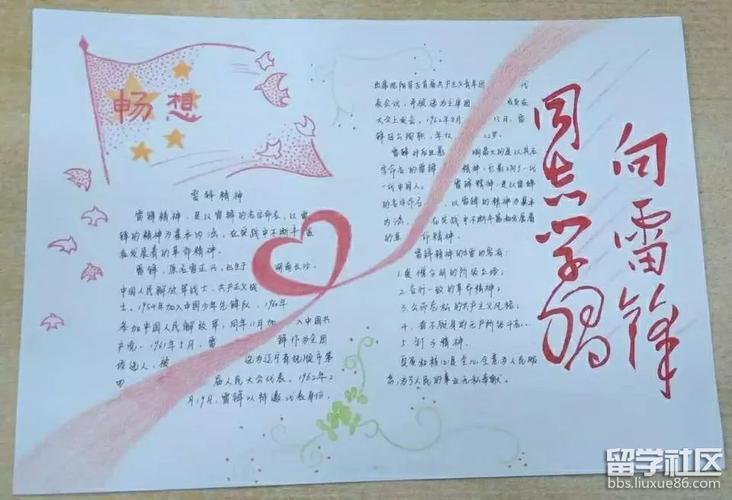 畅想
雷锋精神
雷锋精神,是以雷锋的名字命名,以雷
锋的精神为基本内涵,在实践中不断丰富
和发展着的革命精神。
雷锋,原名雷正兴,出生于 湖南长沙,
中国人民解放军战士、共产主义战
士。1954年加入中国少年先锋队,1960年
参加中国人民解放军,同年11月加 入中国共
产党。1961年5月,雷 锋作为全团
候选人,被 选为辽宁省抚顺市第
四 届人民大会代表。1962年2
月19日,雷锋以特邀代表身份,
出席沈阳军区首届共产主义青年团 代
表会议,并被选为主席团
大会上发言。1962年8月 15日,雷
锋因公殉职,年仅 22岁。
雷锋对后世影 响最大的是以其名
字命名的雷锋 精神,影响了一
代中国人。 雷锋精神,是以雷锋
的名字命名, 以雷锋的精神为基本
内涵, 在实践中不断丰富和发展着
的革 命精神。
雷锋精神的
1.爱憎分明的阶级立场;
2.言行一致的革命精神;
3.公而忘私的共产主义风格;
4.奋不顾身的无产阶级斗志。
5.钉子精神。
其实质和核心是全心全意为人民服
务,为了人民的事业无私奉献。
向雷锋
同志学习
留学社区
bbs.liuxue86.com